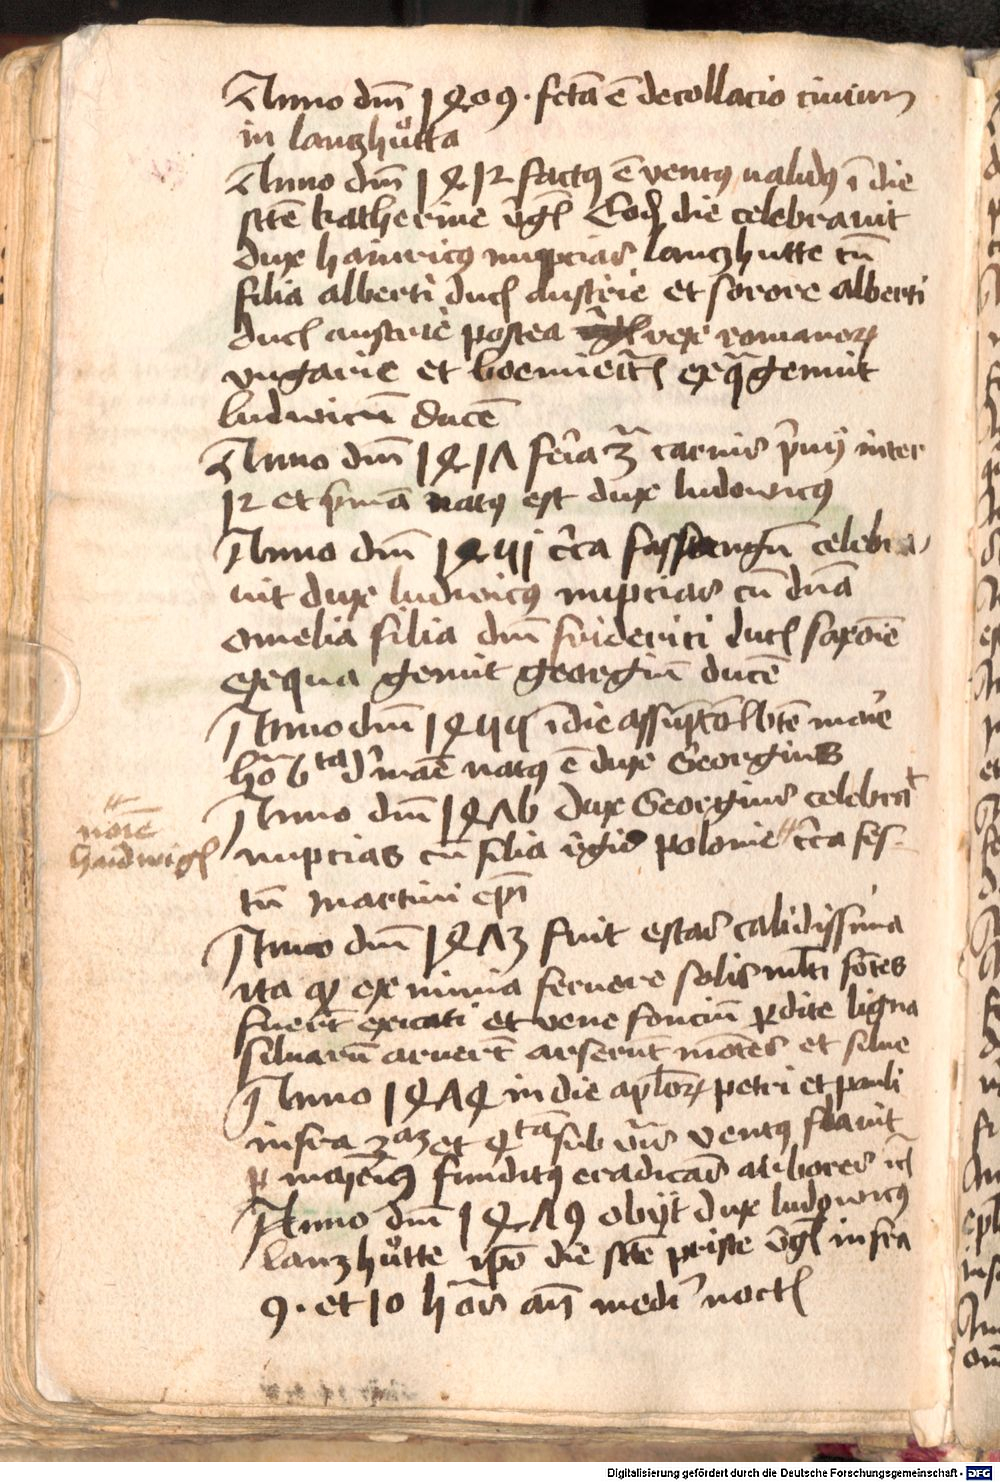 Anno dm̄ 1409. fctā ē decollacio ciuium
in lanczhůtta
Anno dm̄ 1412 factꝯ ē ventꝯ ualidꝯ ī die
sctē katherine v̄gſ Eod̄ die celebrauit
dux hainricꝯ nupcias lanczhutte cū
filia alberti ducſ austrie et sorore alberti
ducſ austrie postea rex romanorꝝ
vngarie et boemie exq̄ genuit
ludwicū ducē
Anno dm̄ 1417 fer̄ia 3ᵃ carnis p̄uij inter
12 et p̄mā natꝯ est dux ludowicꝯ
Anno dm̄ c̄ca celebra
uit dux ludwicꝯ nupcias cū dn̄a
omelia filia dm̄ friderici ducſ saxōie
exqua genuit georgiū ducē
Anno dm̄ ī die assūpcōis btē marie
hō 6ᵗᵃ natꝯ ē dux Georgius
Anno dm̄ 147b dux Georgius celebraᵗ
nupcias cū filia r̄gis polonie c̄ca fes-
noīe
haidwigſ
tū martini ep̄i
Anno dm̄ 1473 fuit estas calidissima
ita ꝙ ex nimia feruore solis ml̄ti fōtes
fuerūt exicati et vene fonciū ꝑdite ligna
siluarū aruerūt arserūt mōtes et silue
Anno 1474 in die aplōrꝝ petri et pauli
infra 3ᵃᵐ et 4ᵗᵃ sub v̄is ventꝯ flauit
ꝑ funditꝯ eradicās arbores
Anno dm̄ 1479 obijt dux ludowicꝯ
lanzhůtte ip̄o die sctē priste v̄gſ infra
9. et 10 hōās an̄ medi' noctſ
Digitalisierung gefördert durch die Deutsche Forschungsgemeinschaft - DFG